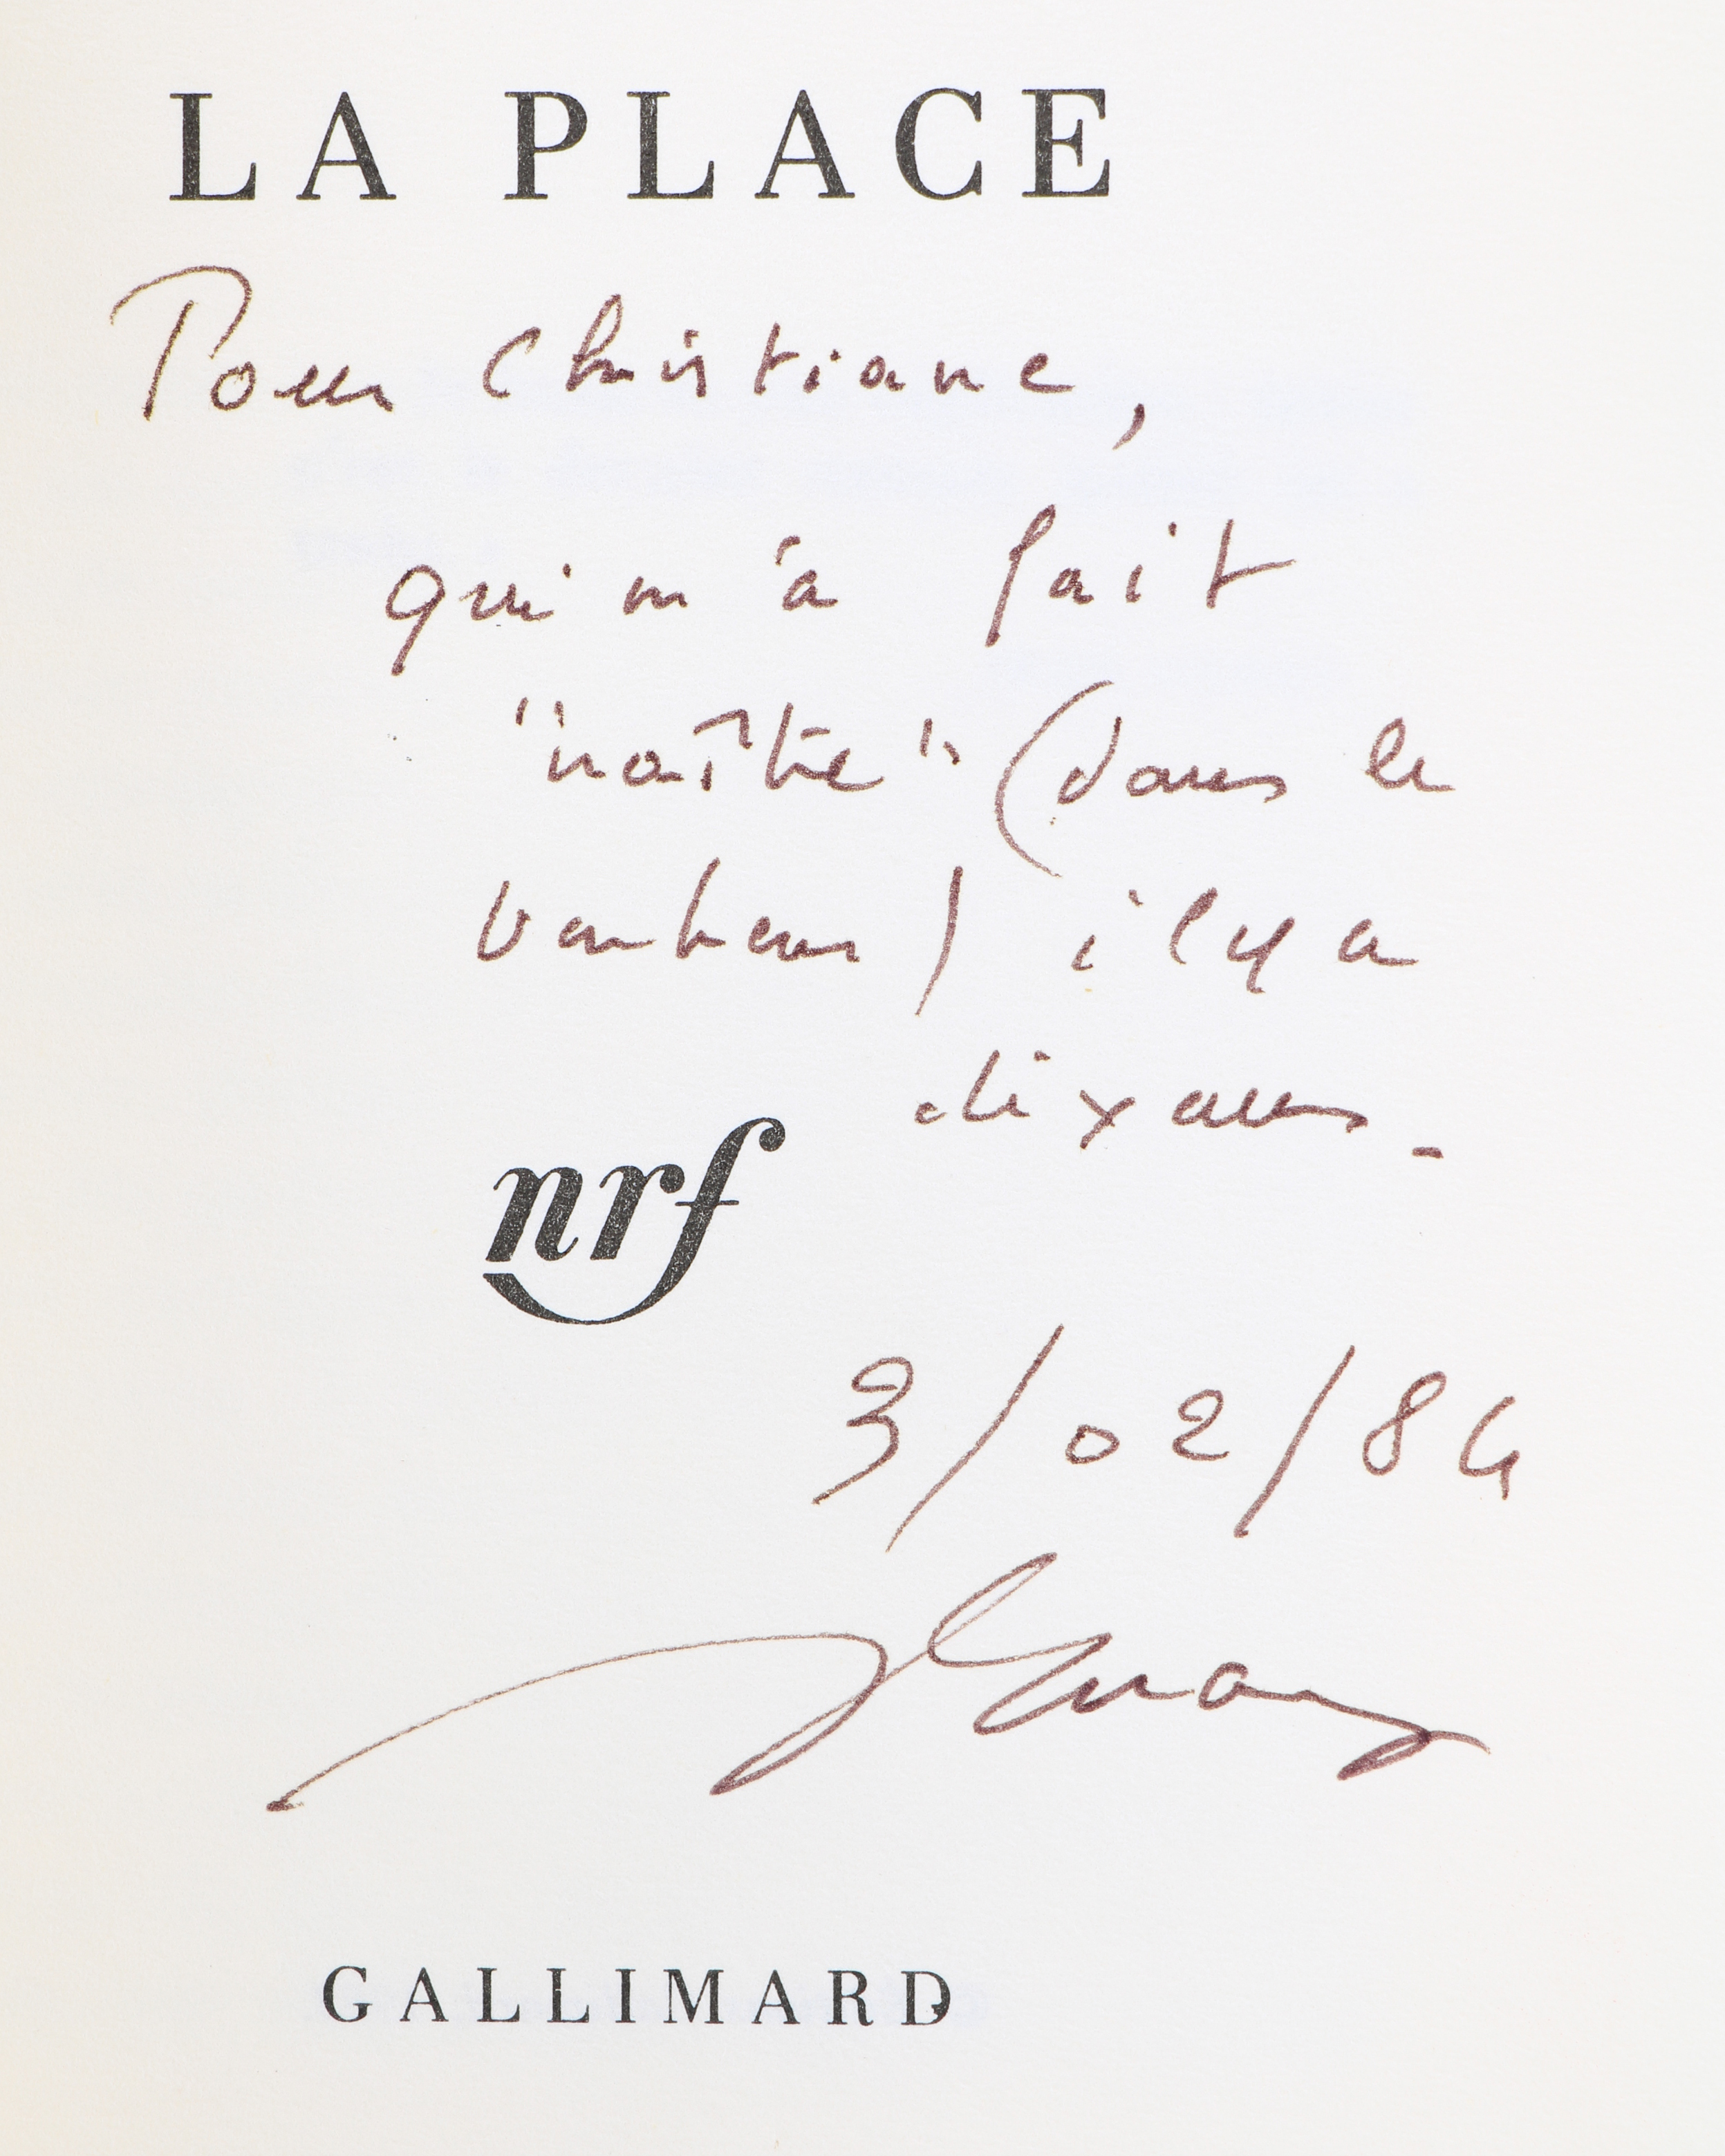 LA PLACE
Pour Christiane,
qui m'a fait
"naître" (dans le
bonheur) il y a
dix ans.
nrf
3/02/84
GALLIMARD